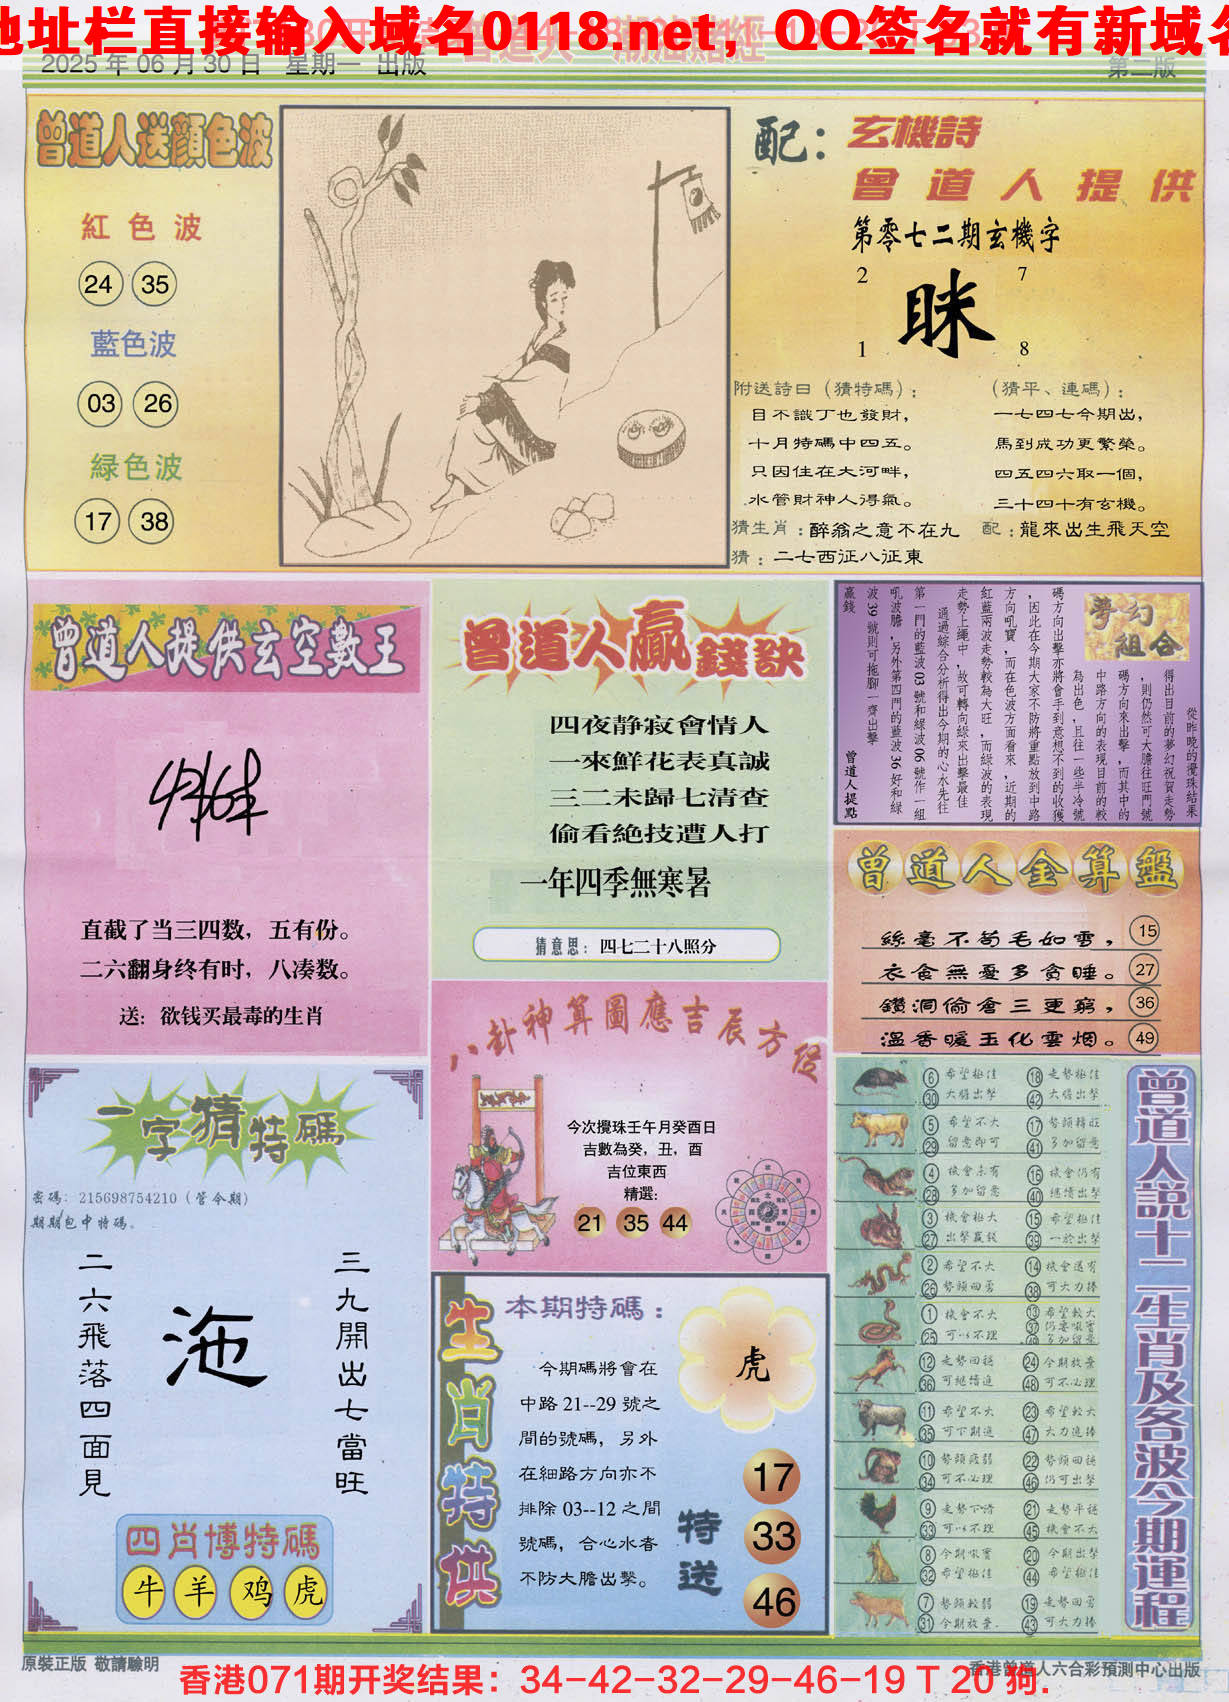 地址栏直接输入域名0118.net，QQ签名就有新域名
2025 年 06 月 30 日 星期一 出版
第二版
曾道人送顔色波
紅色波
24 35
藍色波
03 26
緑色波
17 38
配：玄機詩
曾道人提供
第零七二期玄機字
2 7
眯
1 8
附送詩曰（猜特碼）：
目不識丁也發財，
十月特碼中四五。
只因住在大河畔，
水管財神人得氣。
（猜平、連碼）：
一七四七今期出，
馬到成功更繁榮。
四五四六取一個，
三十四十有玄機。
猜生肖：醉翁之意不在九
配：龍來出生飛天空
猜：二七西征八征東
曾道人提供玄空數王
直截了当三四数，五有份。
二六翻身终有时，八凑数。
送：欲钱买最毒的生肖
曾道人贏錢訣
四夜静寂會情人
一來鮮花表真誠
三二未歸七清查
偷看絶技遭人打
一年四季無寒暑
猜意思：四七二十八照分
夢幻組合
從昨晚的攪珠結果
得出目前的夢幻祝賀走勢
，則仍然可大膽往旺門號
碼方向來出擊，而其中的
中路方向的表現目前的較
為出色，且往一些半冷號
碼方向出擊亦將會手到意想不到的收獲
，因此在今期大家不防將重點放到中路
方向吼寶，而在色波方面看來，近期的
紅藍兩波走勢較為大旺，而綠波的表現
走勢上繩中，故可轉向綠來出擊最佳
通過綜合分析得出今期的心水先往
第一門的藍波 03 號和綠波 06 號作一組
吼波膽，另外第四門的藍波 36 好和綠
波 39 號則可拖腳一齊出擊
贏錢
曾道人提點
曾道人金算盤
絲毫不苟毛如雪， 15
衣食無憂多貪睡。 27
鑽洞偷倉三更窮， 36
溫香暖玉化雲烟。 49
八卦神算圖應吉辰方位
今次攪珠壬午月癸酉日
吉數為癸，丑，酉
吉位東西
精選：
21 35 44
一字猜特碼
密碼：215698754210（管令期）
期期包中特碼。
三九開出七當旺
沲
二六飛落四面見
四肖博特碼
牛 羊 鸡 虎
生肖特供
本期特碼：
今期碼將會在
中路 21--29 號之
間的號碼，另外
在細路方向亦不
排除 03--12 之間
號碼，合心水者
不防大膽出擊。
虎
特送
17
33
46
曾道人説十二生肖及各波今期運程
6 30 希望極佳 大膽出擊 18 42 走勢極佳 大膽出擊
5 29 希望不大 留意即可 17 41 勢頭轉旺 多加留意
4 28 機會未有 多加留意 16 40 機會仍有 繼續出擊
3 27 機會極大 出擊贏錢 15 39 希望極佳 一於出擊
2 26 希望不大 勢頭回穷 14 38 機會還有 可大力捧
1 25 機會不大 可以不理 13 37 49 希望較大 仍要吼實 多加留意
12 36 走勢回穩 可繼續追 24 48 今期放棄 可不必理
11 35 希望不大 可下期追 23 47 希望較大 大力追捧
10 34 勢頭疲弱 可不必理 22 46 勢頭回穩 仍可出擊
9 33 走勢下滑 可以不理 21 45 走勢平穩 機會不大
8 32 今期吼實 希望極佳 20 44 今期出擊 希望極佳
7 31 勢頭較弱 今期放棄 19 43 走勢回穷 可大力捧
原裝正版 敬請驗明
香港曾道人六合彩預測中心出版
香港071期开奖结果：34-42-32-29-46-19 T 20 狗.